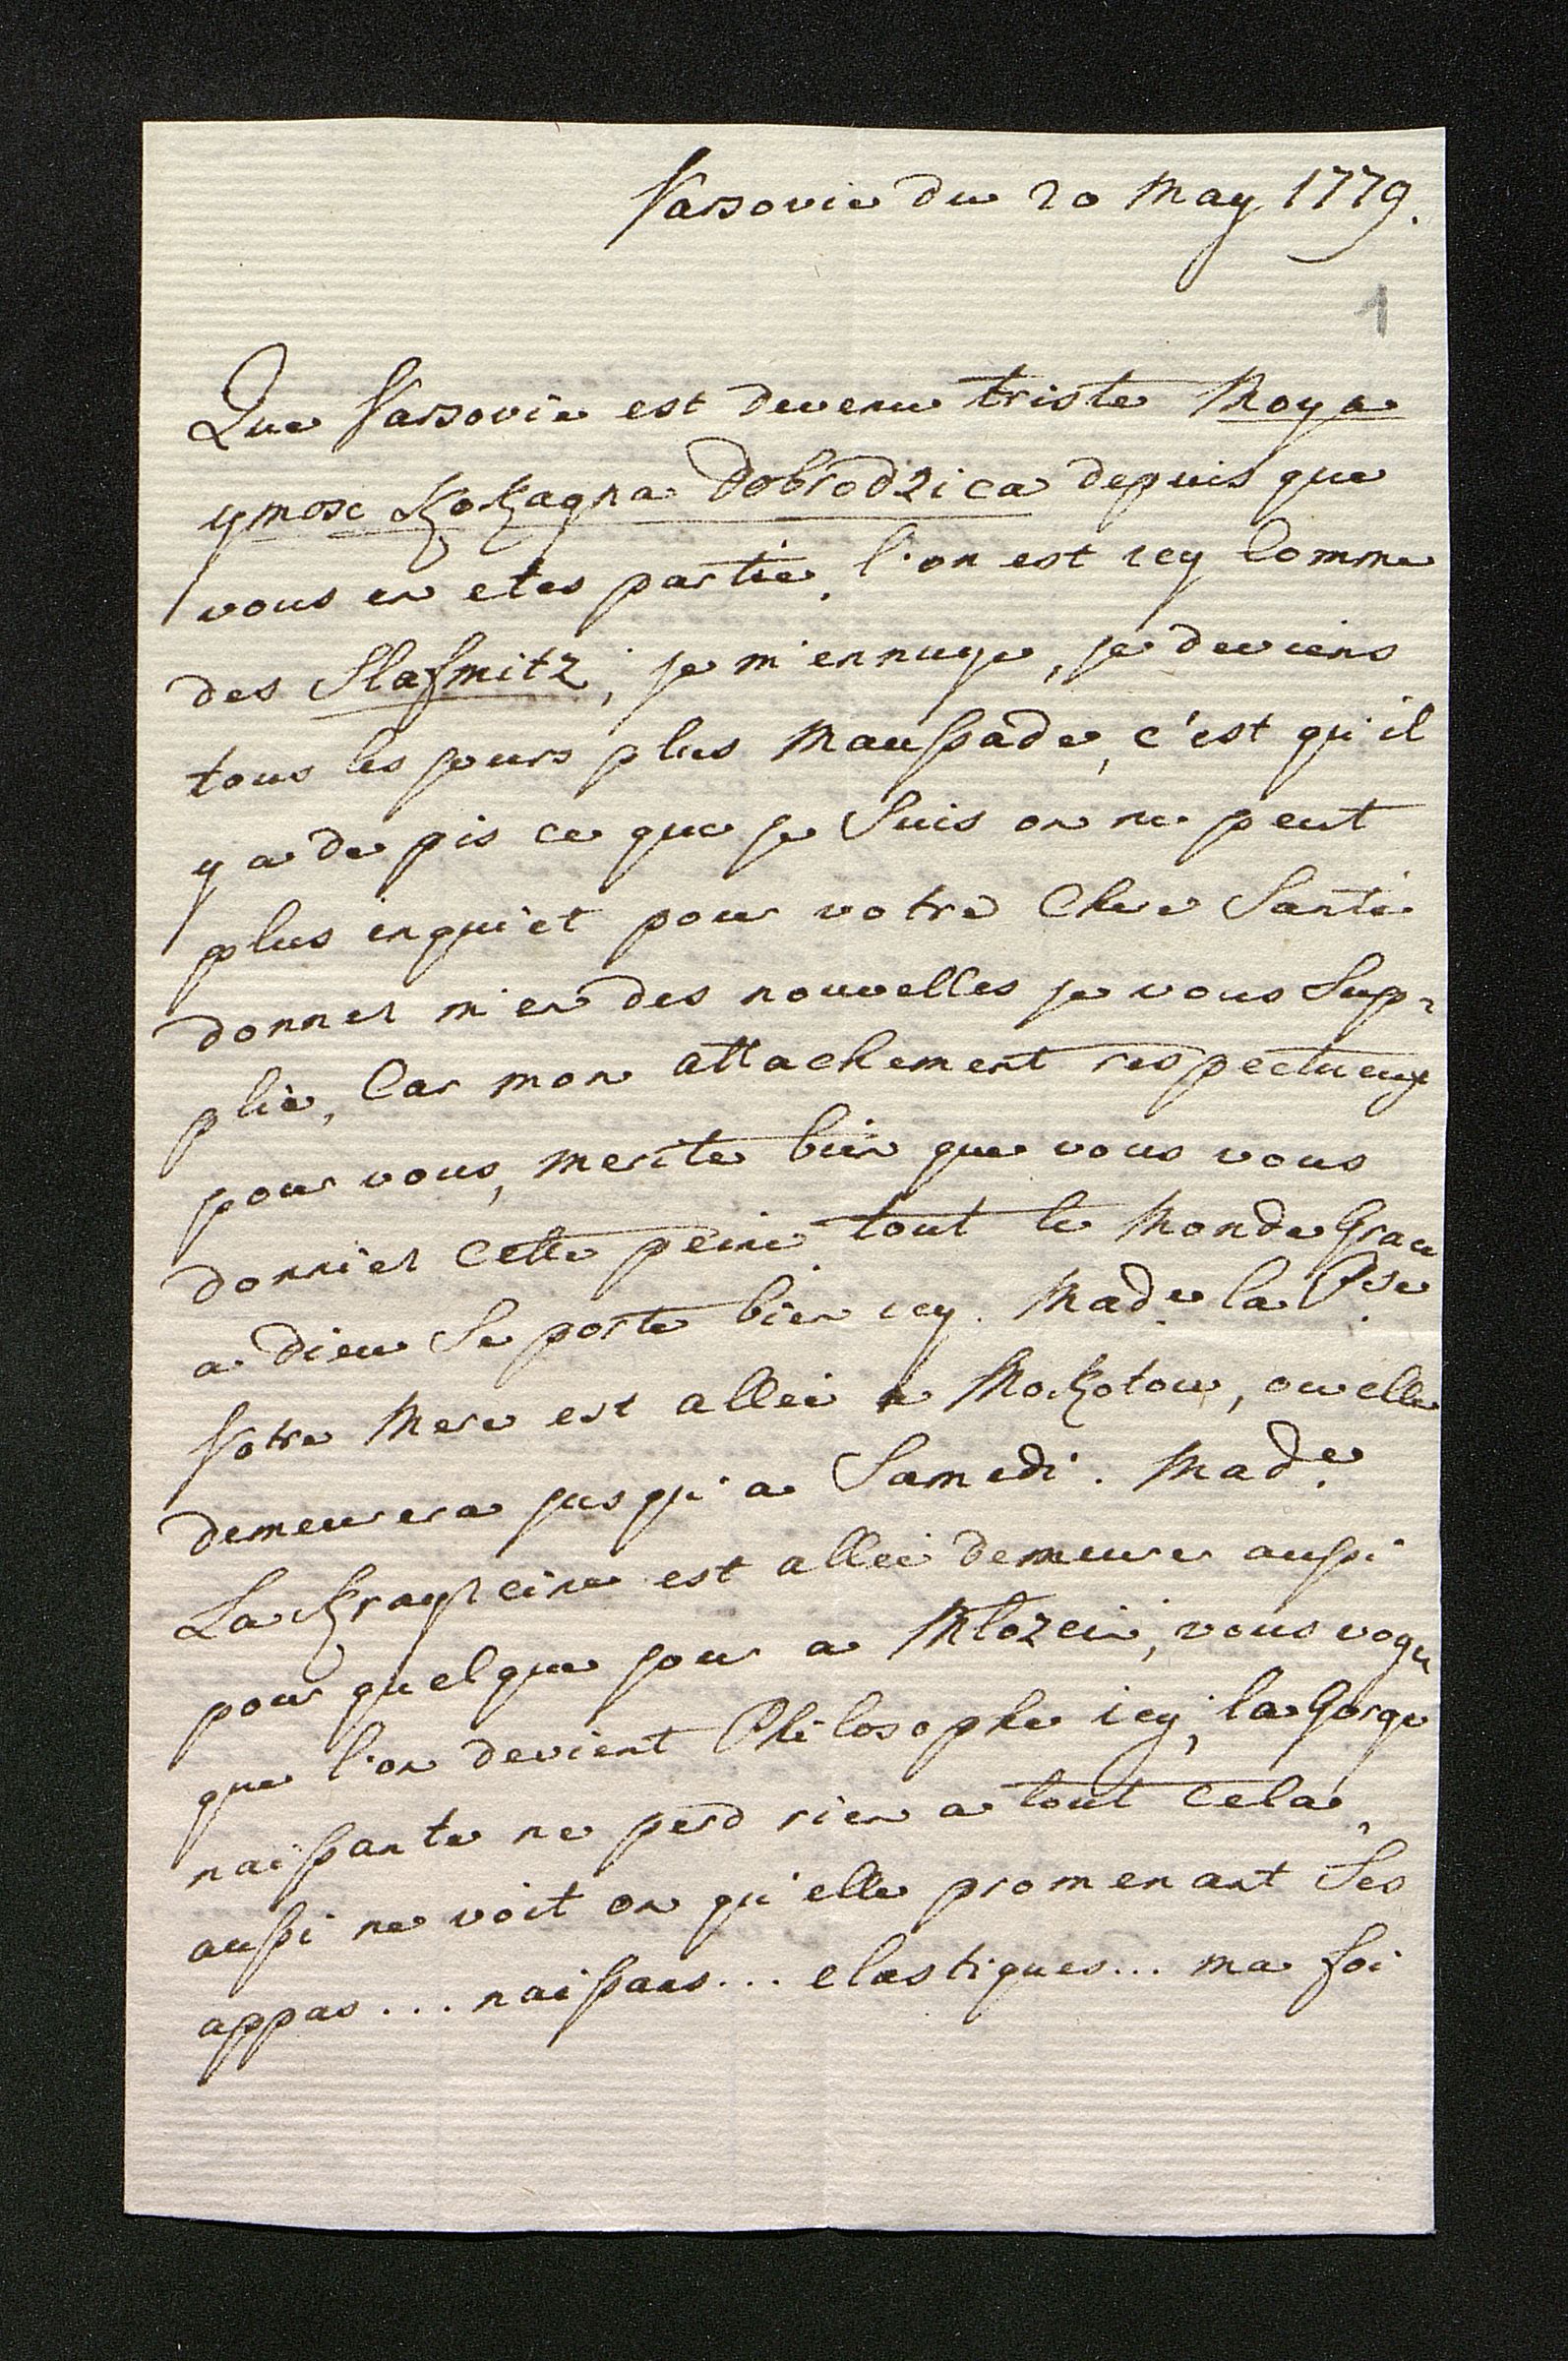 Varsovie du 20 May 1779.
1
Que Varsovie est devenu triste Moya
ymosc Kokagna Dobrodzica depuis que
vous en etes partie, l'on est icy Comme
des Slafmitz, je m'ennuye, je deviens
tous les jours plus Maussade, c'est qu'il
y a de pis ce que je Suis on ne peut
plus inquiet pour votre Chere Santé
donnez m'en des nouvelles je vous Sup-
plie, Car mon attachement respectueux
pour vous, merite bien que vous vous
donniez cette peine tout le Monde Grace
a dieu Se porte bien icy. Made la Psse
Votre Mere est alleé a Mokotow, ou elle
demeurera jusqu'a Samedi. Made
La Krayzeine est alleé demeurer aussi
pour quelque jour a Mlozein, vous voyez
que l'on devient Philosophe icy, la Gorge
naissante ne perd rien a tout cela,
aussi ne voit on qu'elle promenant Ses
appas... naissans... elastiques... ma foi